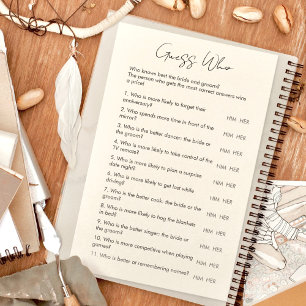 Guess Who
Who knows best the bride and groom?
The person who gets the most correct answers wins
a prize!
1. Who is more likely to forget their
anniversary? HIM HER
2. Who spends more time in front of the
mirror? HIM HER
3. Who is the better dancer: the bride or
the groom? HIM HER
4. Who is more likely to take control of the
TV remote? HIM HER
5. Who is more likely to plan a surprise
date night? HIM HER
6. Who is more likely to get lost while
driving? HIM HER
7. Who is the better cook: the bride or the
groom? HIM HER
8. Who is more likely to hog the blankets
in bed? HIM HER
9. Who is the better singer: the bride or
the groom? HIM HER
10. Who is more competitive when playing
games? HIM HER
11. Who is better at remembering names? HIM HER